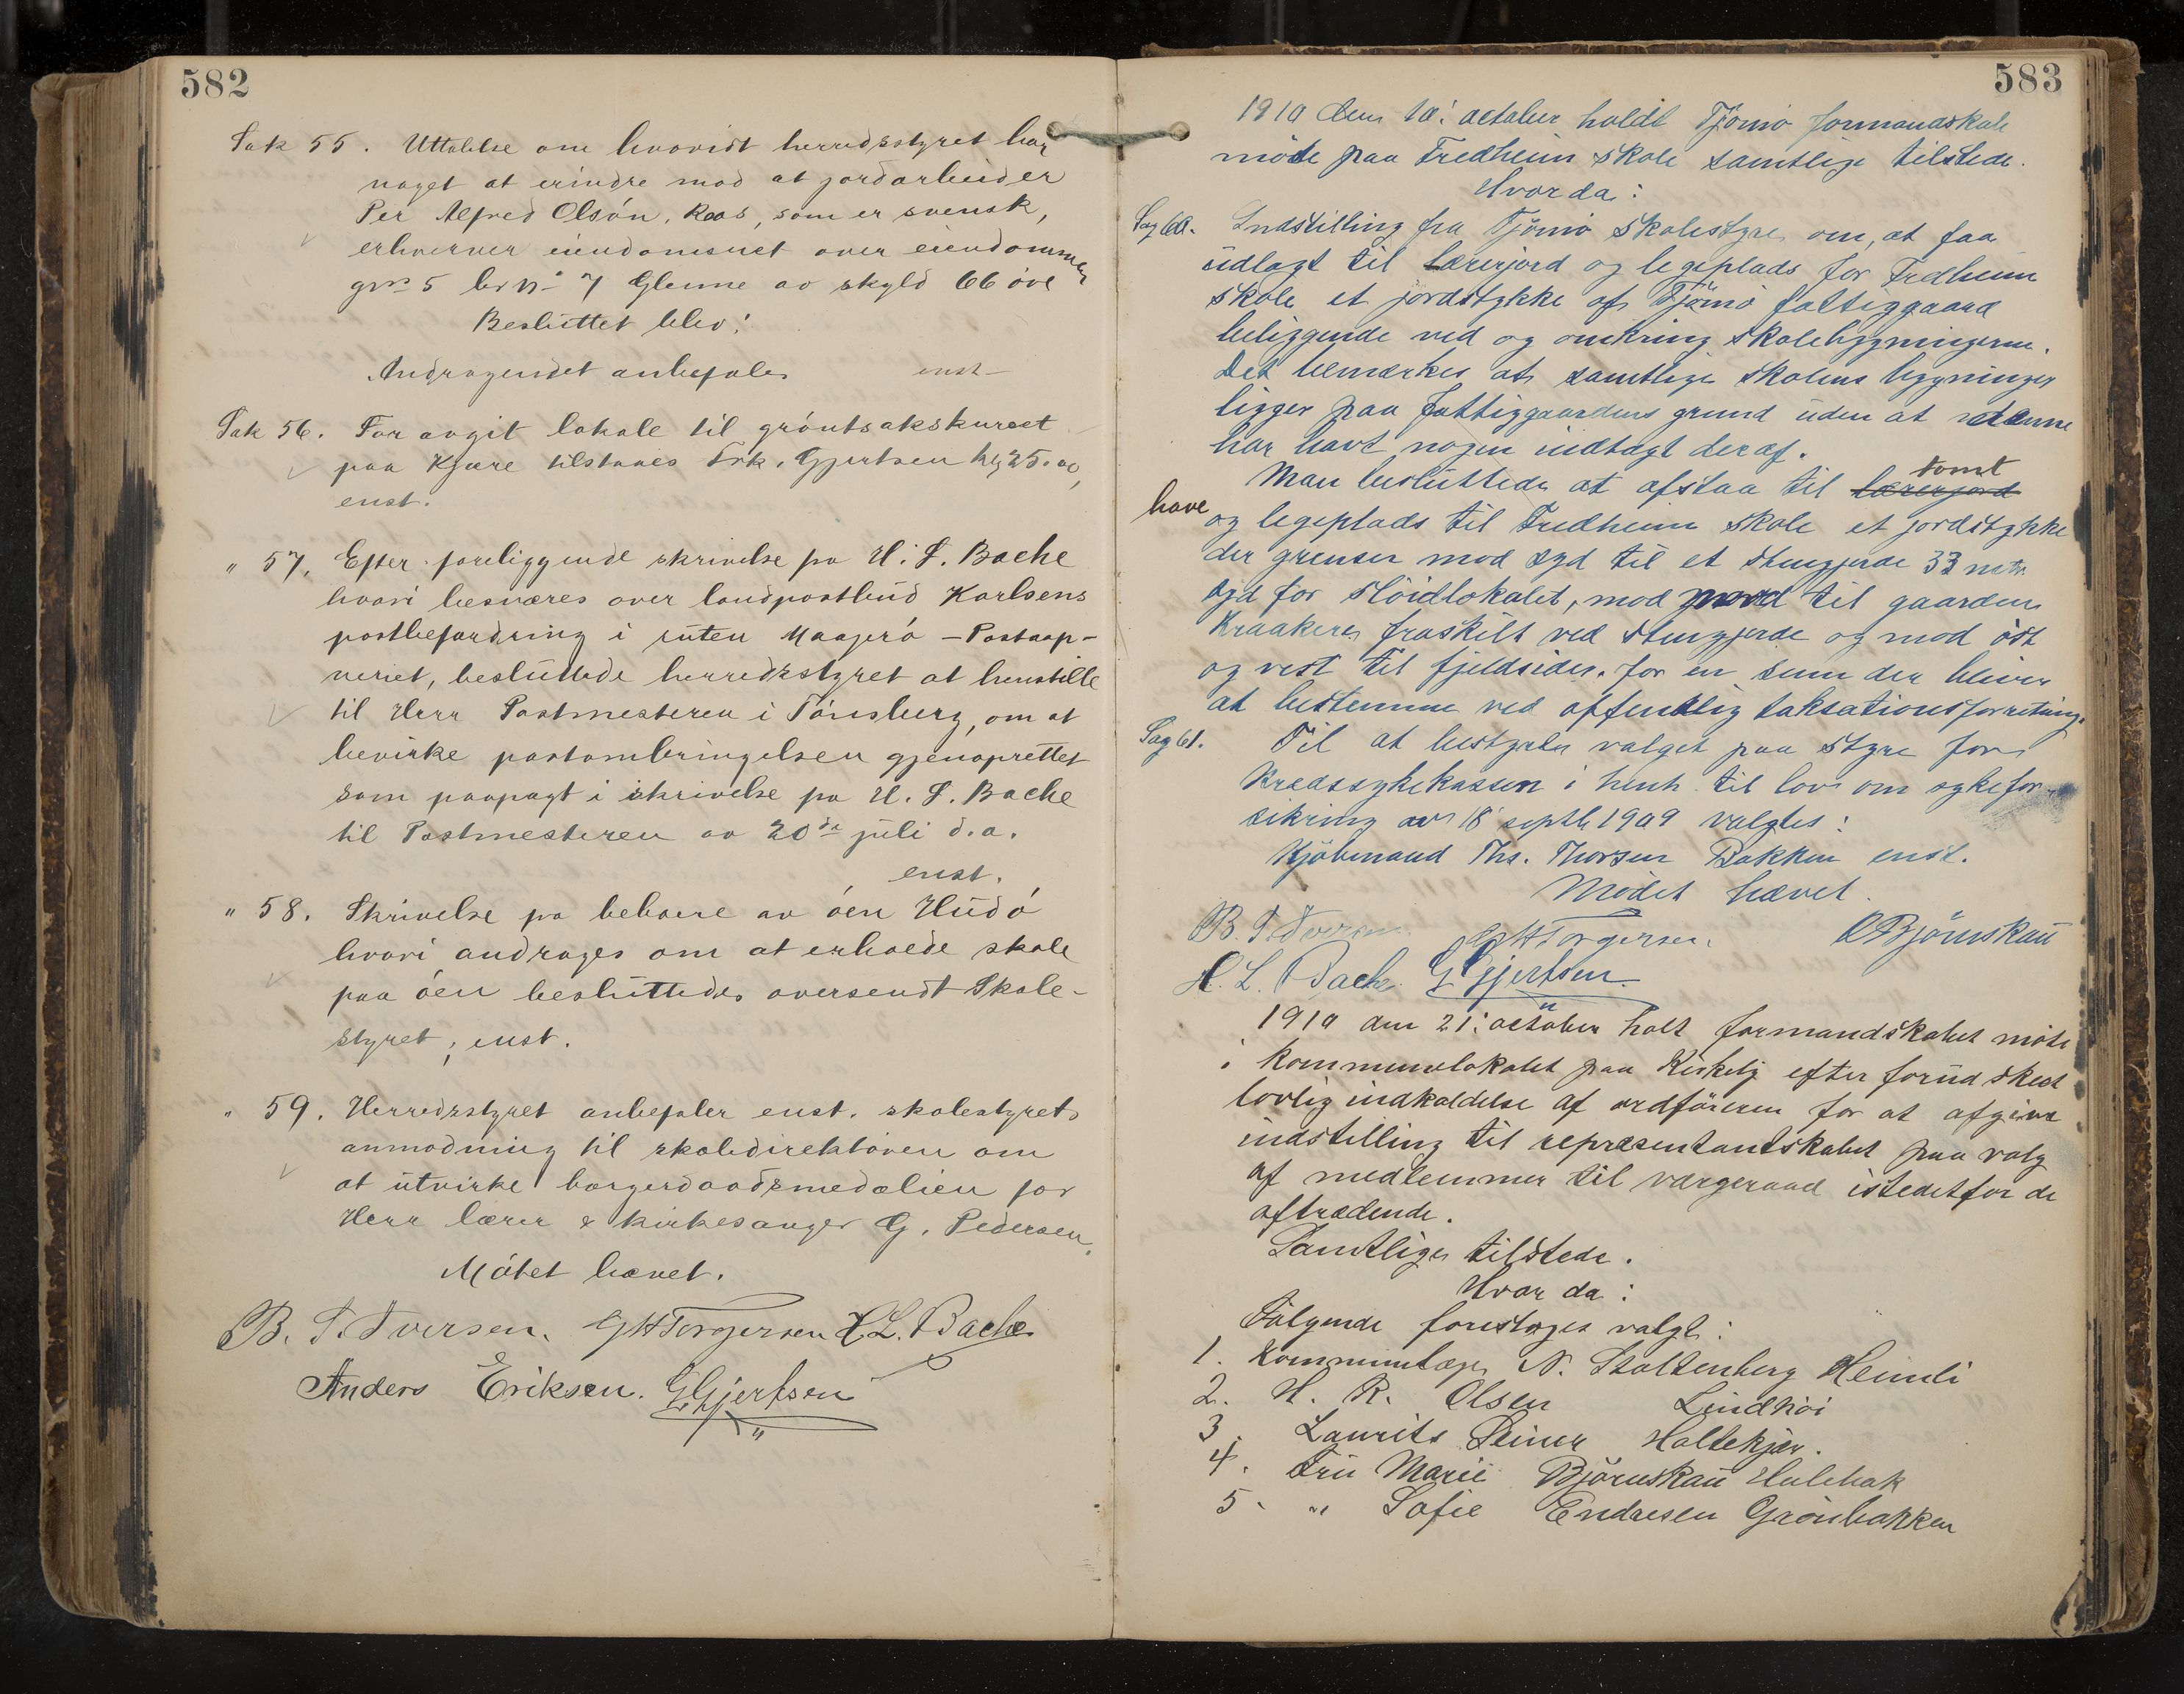 582
Sak 55. Uttalelse om hvorvidt herredsstyret har
noget at erindre mod at jordarbeider
Per Alfred Olsón, Roos, som er svensk,
erhverver eiendomsret over eiendommen
grn 5 brn 7 Glenne av skyld 66 øre
Besluttet blev:
Andragendet anbefales enst
Sak 56. For avgit lokale til gróntsakskurset
paa Kjære tilstaaes Frk. Gjertsen kr 25.00,
enst.
" 57. Efter foreliggende skrivelse fra H. L. Bache
hvori besværes over landpostbud Karlsens
postbefordring i ruten Maageró - Postaap-
neriet, besluttede herredsstyret at henstille
til Herr Postmesteren i Tónsberg, om at
bevirke postombringelsen gjenoprettet
som paapagt i skrivelse fra H. L. Bache
til Postmesteren av 20de juli d.a.
enst.
" 58. Skrivelse fra beboere av óen Hudó
hvori andrages om at erholde skole
paa óen besluttedes oversendt Skole-
styret; enst.
" 59. Herredsstyret anbefaler enst. skolestyrets
anmodning til skoledirektóren om
at utvirke borgerdaadsmedaljen for
Herr lærer & kirkesanger G. Pedersen.
Mótet hævet.
B. T. Iversen. G H Torgersen H L. Bache
Anders Eriksen. G Gjertsen
583
1910 den 10: october holdt Tjömö formandskab
möde paa Fredheim skole samtlige tilstede.
Hvor da:
Sag 60. Indstilling fra Tjömö skolestyre om, at faa
udlagt til lærerjord og legeplads for Fredheim
skole et jordstykke af Tjömö fattiggaard
beliggende ved og omkring skolebygningerne.
Det bemærkes at samtlige skolens bygninger
ligger paa fattiggaardens grund uden at denne
har havt nogen indtægt deraf.
Man besluttede at afstaa til lærerjord tomt
have og legeplads til Fredheim skole et jordstykke
der grenser mod syd til et stengjerde 33 mtr
syd for slöidlokalet, mod nord til gaarden
Kraakere fraskilt ved stengjerde og mod öst
og vest til fjeldsider. for en sum der bliver
at bestemme ved offentlig taksationsforretning.
Sag 61. Til at bestyrer valget paa styre for
Kredssykekassen i henh. til lov om sykefor-
sikring av 18 septb 1909 valgtes:
Kjöbmand Ths. Thorsen Bakken enst.
Mödet hævet.
B. T. Iversen. G H Torgersen. O Björnskau
H. L. Bache. G Gjertsen
1910 den 21: october holt formandskabet möte
i kommunelokalet paa Kirkelj efter forud skeet
lovlig indkaldelse af ordföreren for at afgive
indstilling til repræsentantskabet paa valg
af medlemmer til værgeraad istedetfor de
aftrædende.
Samtlige tilstede.
Hvor da:
Fölgende foreslages valgt:
1. Kommunelæge N. Stoltenberg Heimli
2. H. R. Olsen Lindhöi
3. Laurits Seiner Holtekjær.
4. Fru Marie Björnskau Holebak
5. " Sofie Endresen Grönbakken